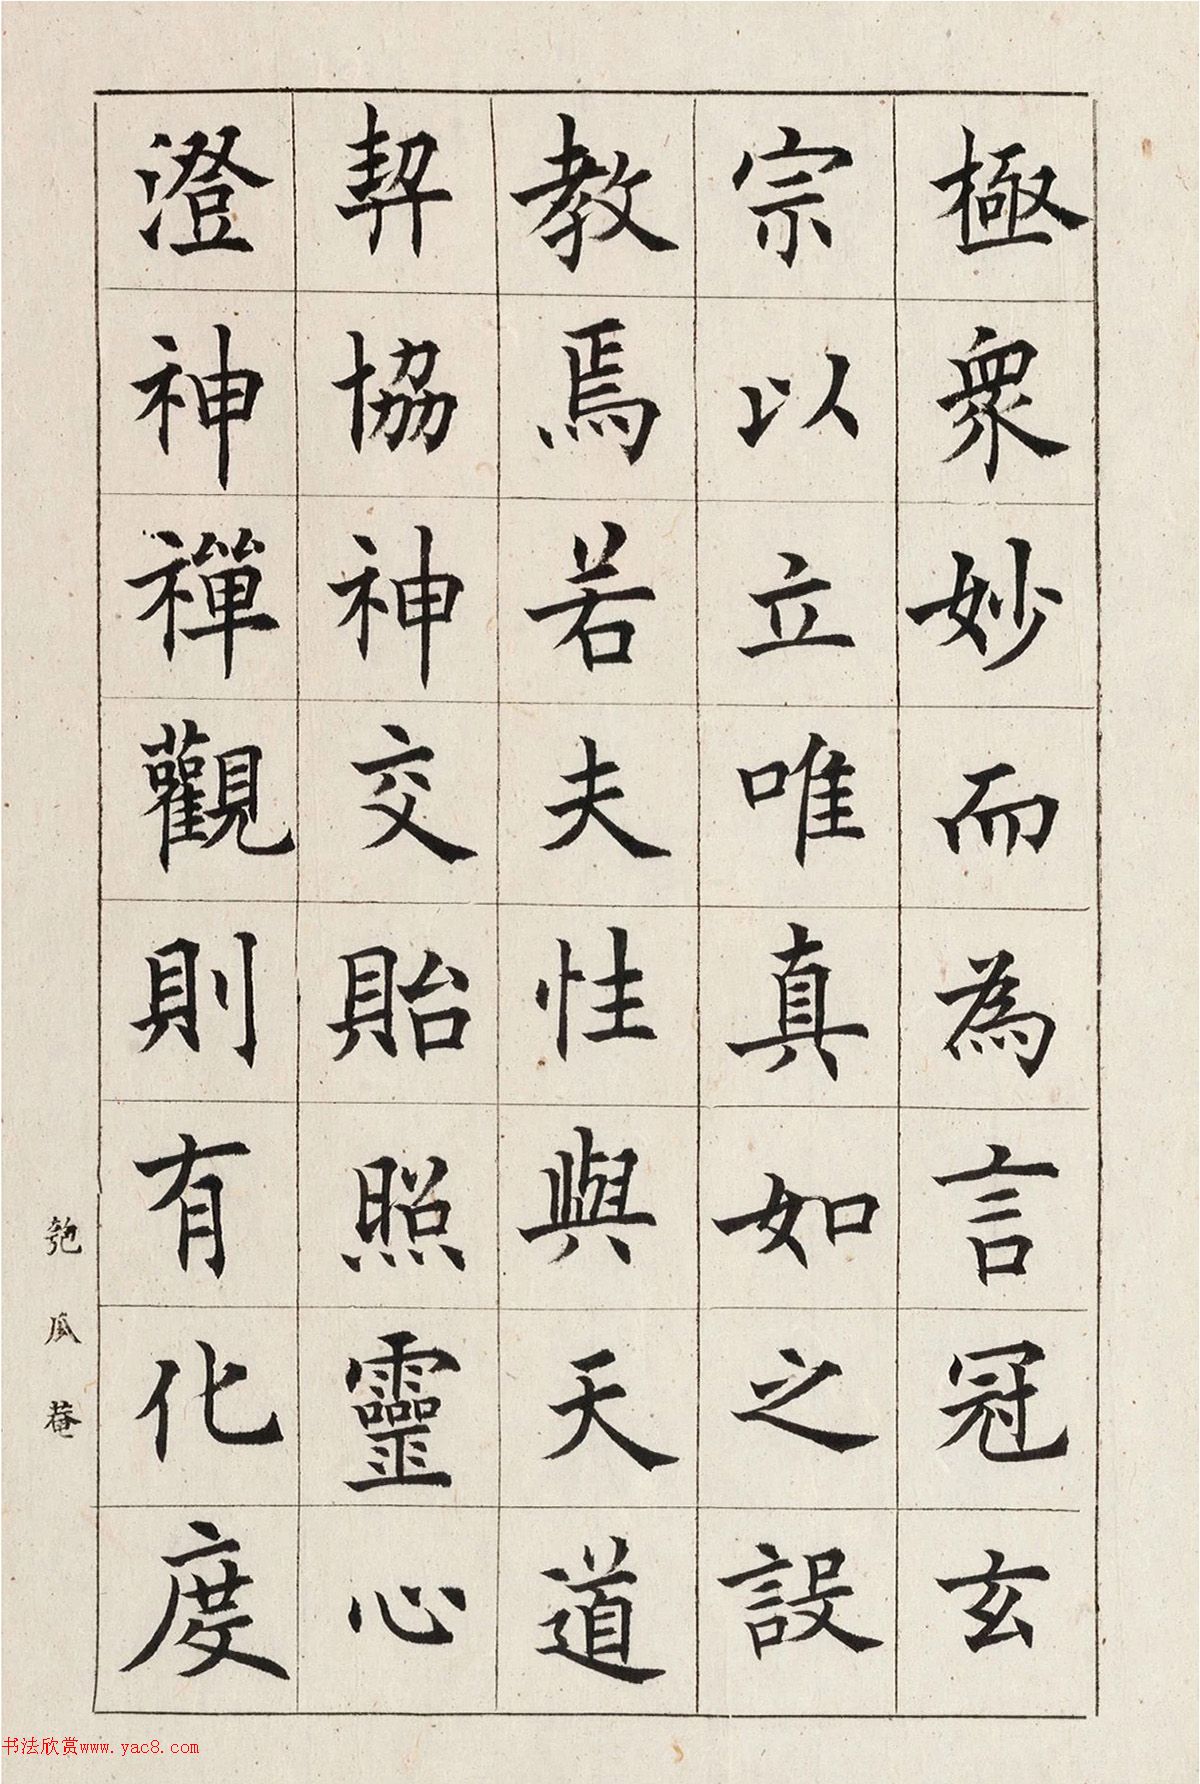 極衆妙而為言冠玄
宗以立唯真如之設
教焉若夫性與天道
契協神交貽照靈心
澄神禪觀則有化度
匏瓜菴
书法欣赏www.yac8.com